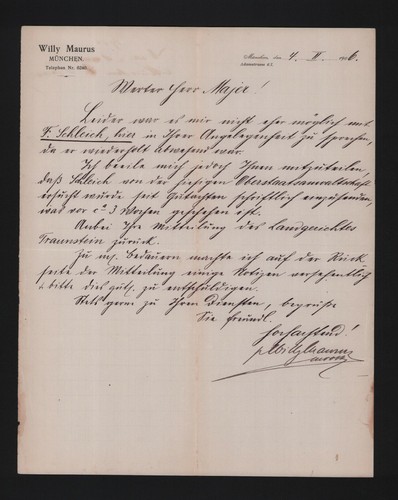 Willy Maurus
MÜNCHEN.
Telephon Nr. 6040.
München, den 4. II. 1906.
Werter Herr Majer!
Leider war es mir nicht eher möglich mit
F. Schleich, hier in Ihrer Angelegenheit zu sprechen,
da er wiederholt Abwesend war.
Ich beeile mich jedoch Ihnen mitzuteilen,
daß Schleich von der hiesigen Oberstaatsanwaltschaft
ersucht wurde sein Gutachten schriftlich einzusenden,
was vor ca 3 Wochen geschehen ist.
Anbei Ihre Mitteilung des Landgerichtes
Traunstein zurück.
Zu m. Bedauern machte ich auf der Rück
seite der Mitteilung einige Notizen versehentlich
& bitte dies gütg. zu entschuldigen.
Stets gerne zu Ihren Diensten, begrüße
Sie freundl.
Hochachtend!